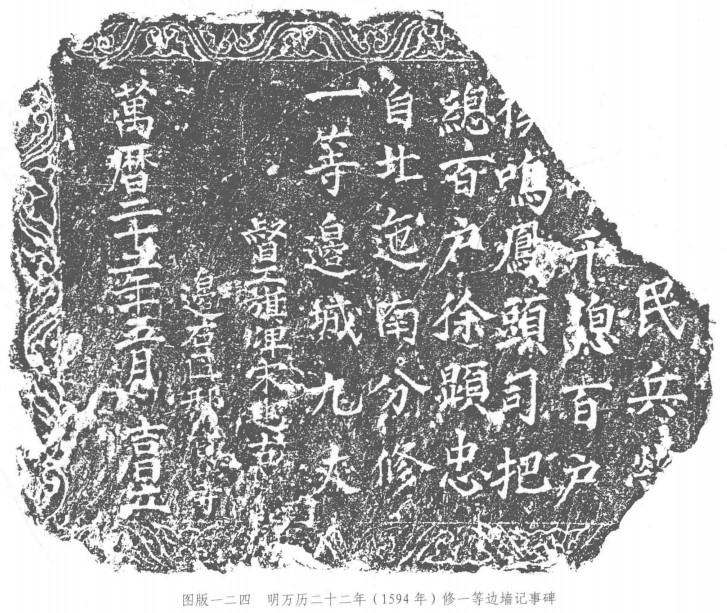 民兵營
千總百户
鳴鳳頭司把
總百户徐顕忠
自北迤南分修
一等邊城九丈
督工旗牌宋
邊石匠
萬曆二十二年五月吉日立
图版一二四 明万历二十二年（1594年）修一等边墙记事碑